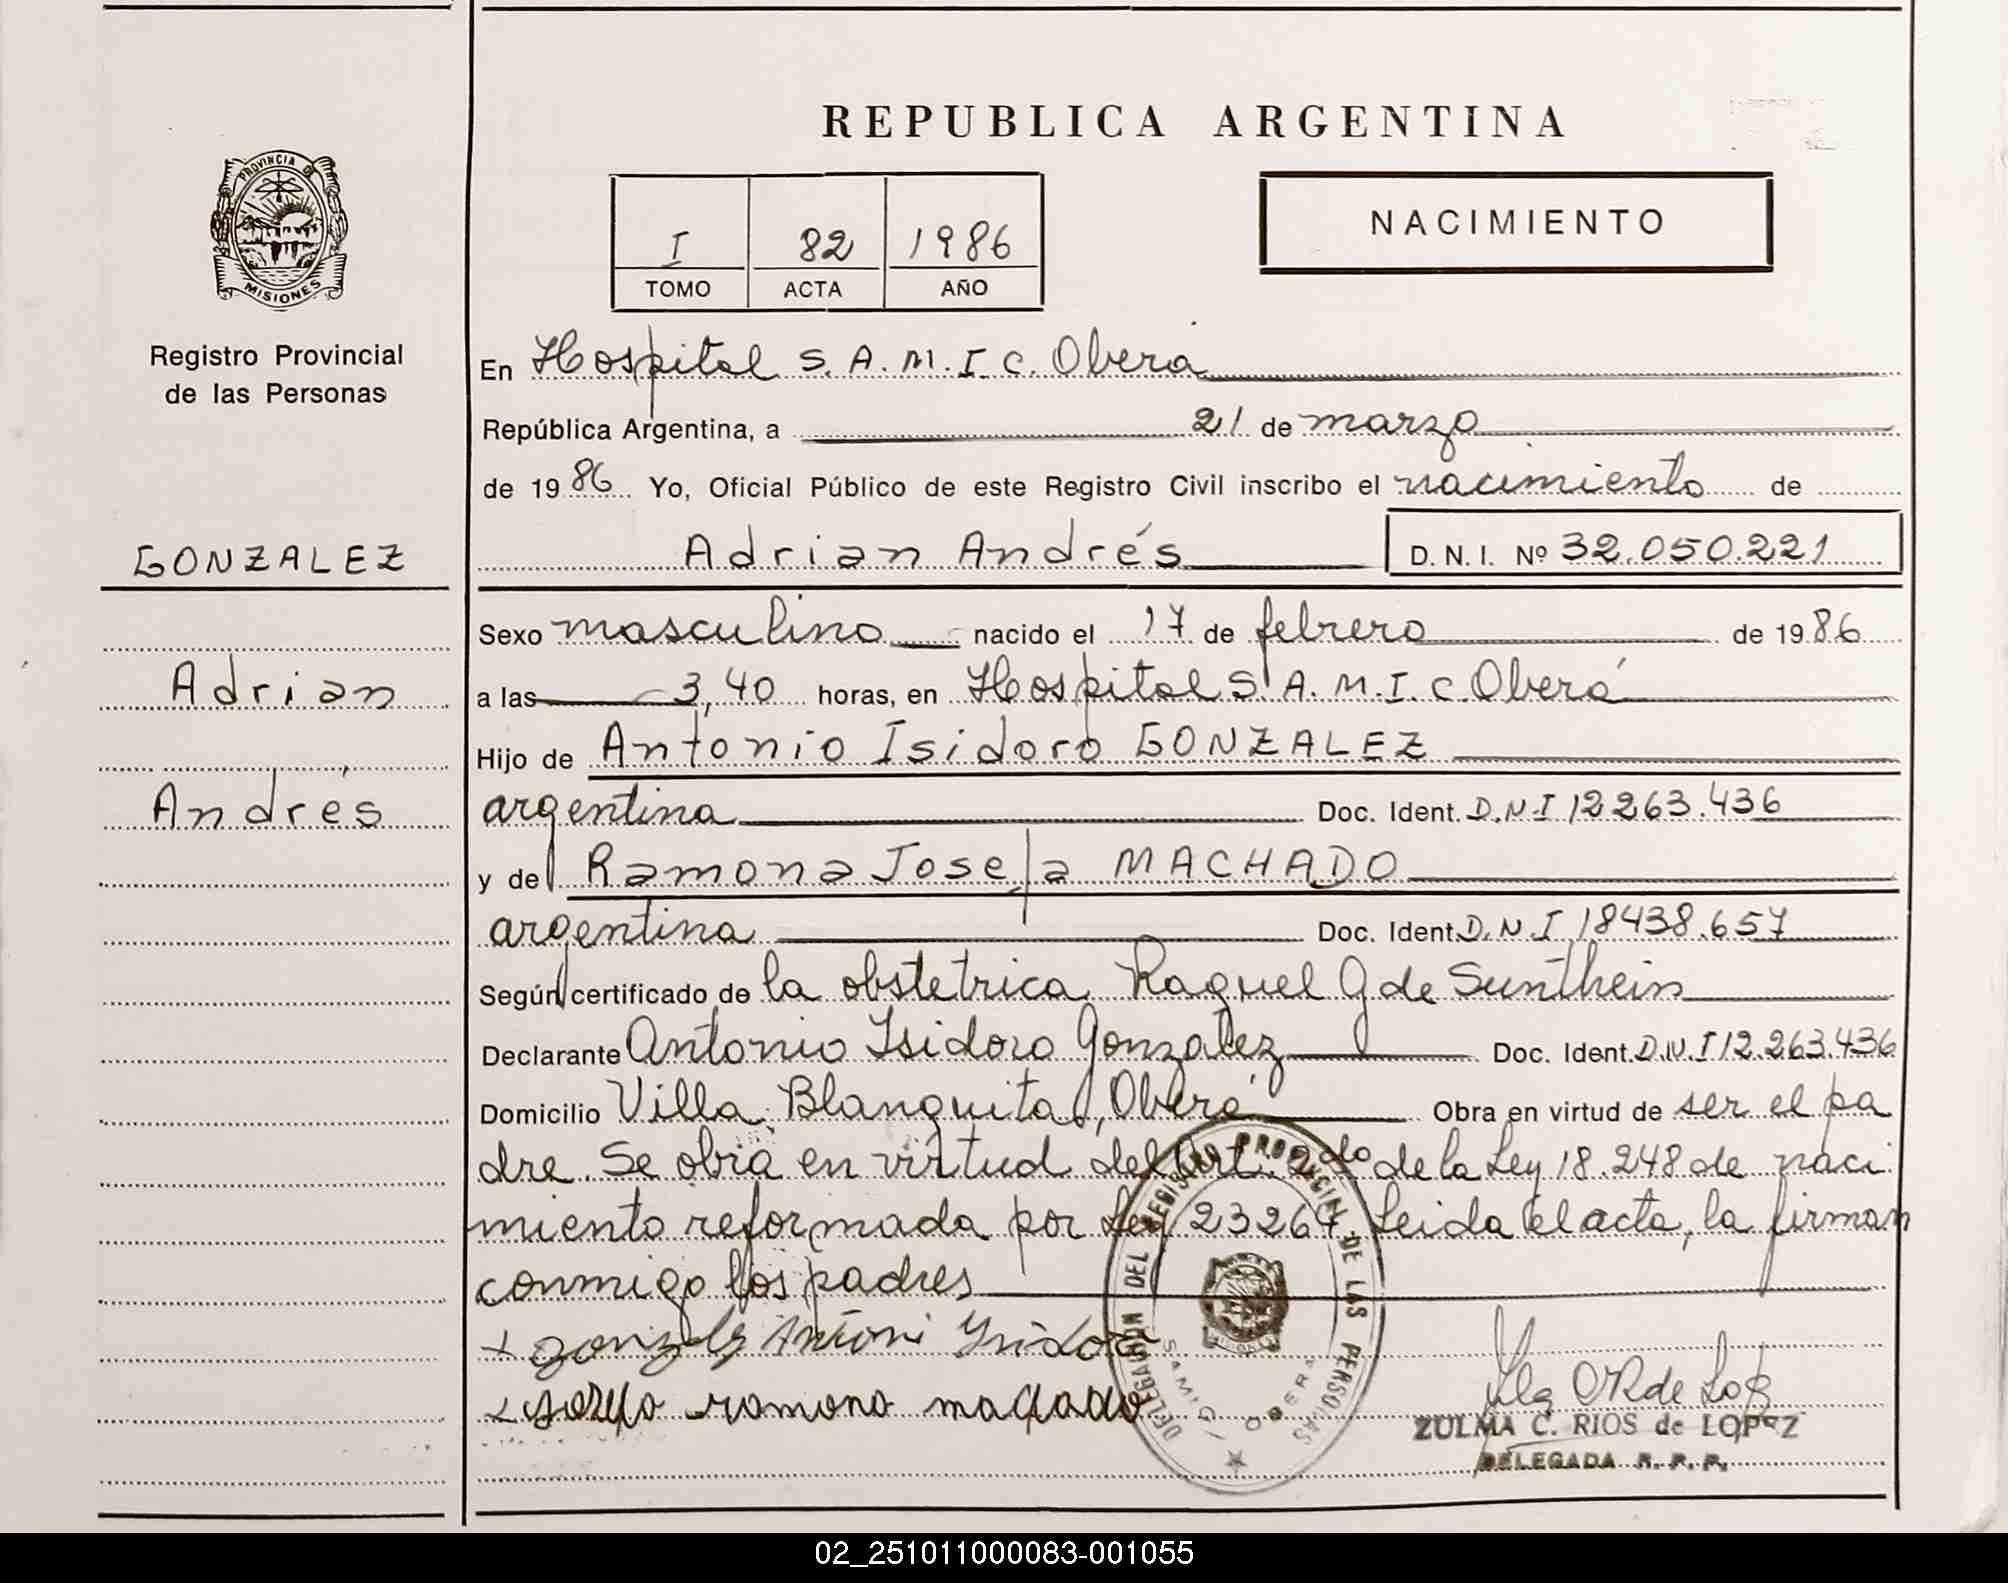 REPUBLICA ARGENTINA
PROVINCIA DE
MISIONES
Registro Provincial
de las Personas
I 82 1986
TOMO ACTA AÑO
NACIMIENTO
En Hospital S.A.M.I.C. Oberá
República Argentina, a 21 de marzo
de 1986 Yo, Oficial Público de este Registro Civil inscribo el nacimiento de
GONZALEZ
Adrian Andrés D.N.I. Nº 32.050.221
Sexo masculino nacido el 17 de febrero de 1986
Adrian
a las 3,40 horas, en Hospital S.A.M.I.C. Oberá
Hijo de Antonio Isidoro GONZALEZ
Andrés
argentina Doc. Ident. D.N.I 12263.436
y de Ramona Josefa MACHADO
argentina Doc. Ident. D.N.I 18438.657
Según certificado de la obstetrica Raquel G de Sunthein
Declarante Antonio Isidoro Gonzalez Doc. Ident. D.N.I 12.263.436
Domicilio Villa Blanquita, Oberá Obra en virtud de ser el pa
dre. Se obra en virtud del Art. 2do de la Ley 18.248 de naci
miento reformada por Ley 23264 Leida el acta, la firman
conmigo los padres
DELEGACION DEL REGISTRO PROVINCIAL DE LAS PERSONAS
SAMIC OBERA
ramona machado
ZULMA C. RIOS de LOPEZ
DELEGADA R. P. P.
02_251011000083-001055